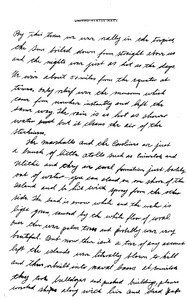 By this time we were really in the tropics
the sun boiled down from straight above us
and the nights were just as hot as the days
We were about 50 miles from the equator at
times, only relief was the monsoon which
came from nowhere instantly and left the
same way. The rain is as hot as shower
water but it clears the air of the
The Marshalls and the Carolines are just
a bunch of little atolls such as Eniwetok and
and they are coral formations just barely
out of water. You can stand on one shore of the
island and be hit with spray from the other
side. The sand is snow white and the water is
light green, caused by the white floor of coral
under them were palm trees and probably were very
beautiful. But now there isn't a tree of any account
left the islands were literally blown to hell
and then rebuilt into naval bases. At
they took bulldozers and pushed buildings, planes
wrecked ships along with